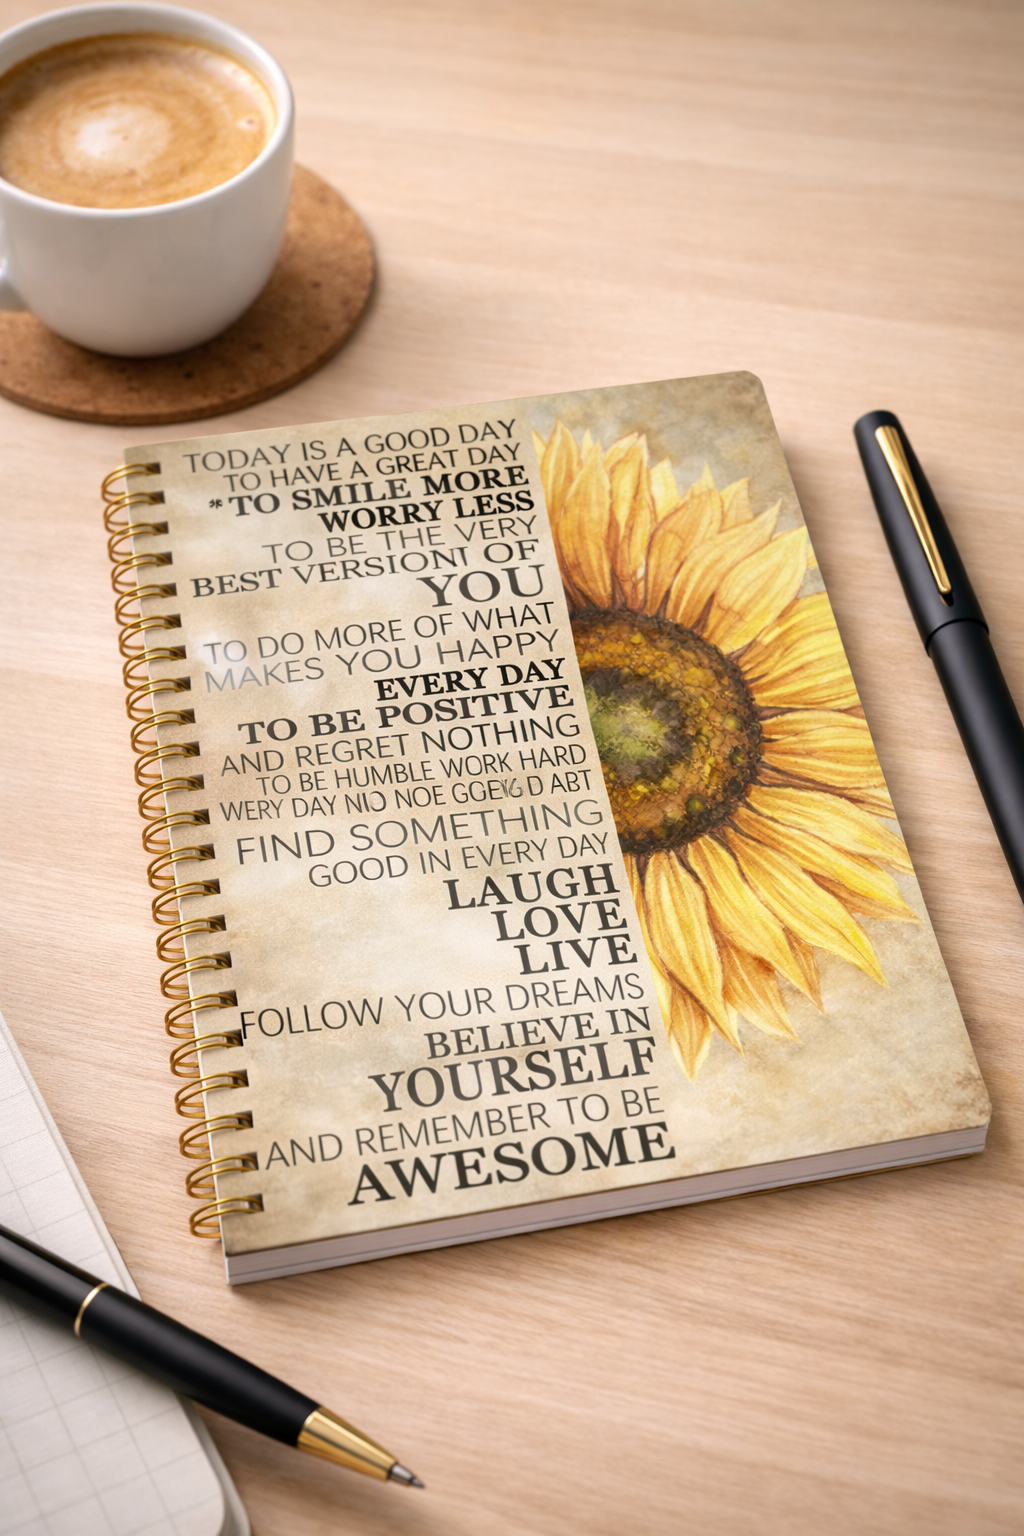 TODAY IS A GOOD DAY
TO HAVE A GREAT DAY
*TO SMILE MORE
WORRY LESS
TO BE THE VERY
BEST VERSIONT OF
YOU
TO DO MORE OF WHAT
MAKES YOU HAPPY
EVERY DAY
TO BE POSITIVE
AND REGRET NOTHING
TO BE HUMBLE WORK HARD
WERY DAY NOE D ABT
FIND SOMETHING
GOOD IN EVERY DAY
LAUGH
LOVE
LIVE
FOLLOW YOUR DREAMS
BELIEVE IN
YOURSELF
AND REMEMBER TO BE
AWESOME